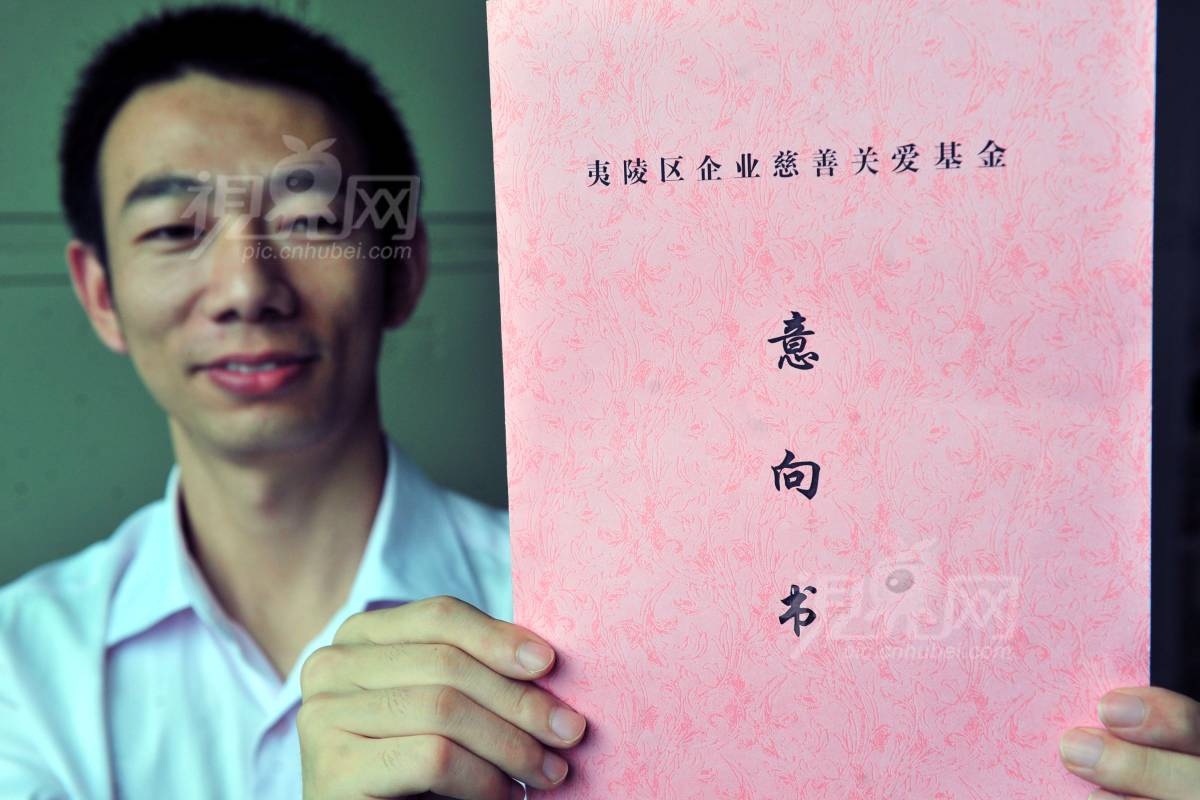 夷陵区企业慈善关爱基金
意
向
书
视界网
pic.cnhubei.com
视界网
pic.cnhubei.com